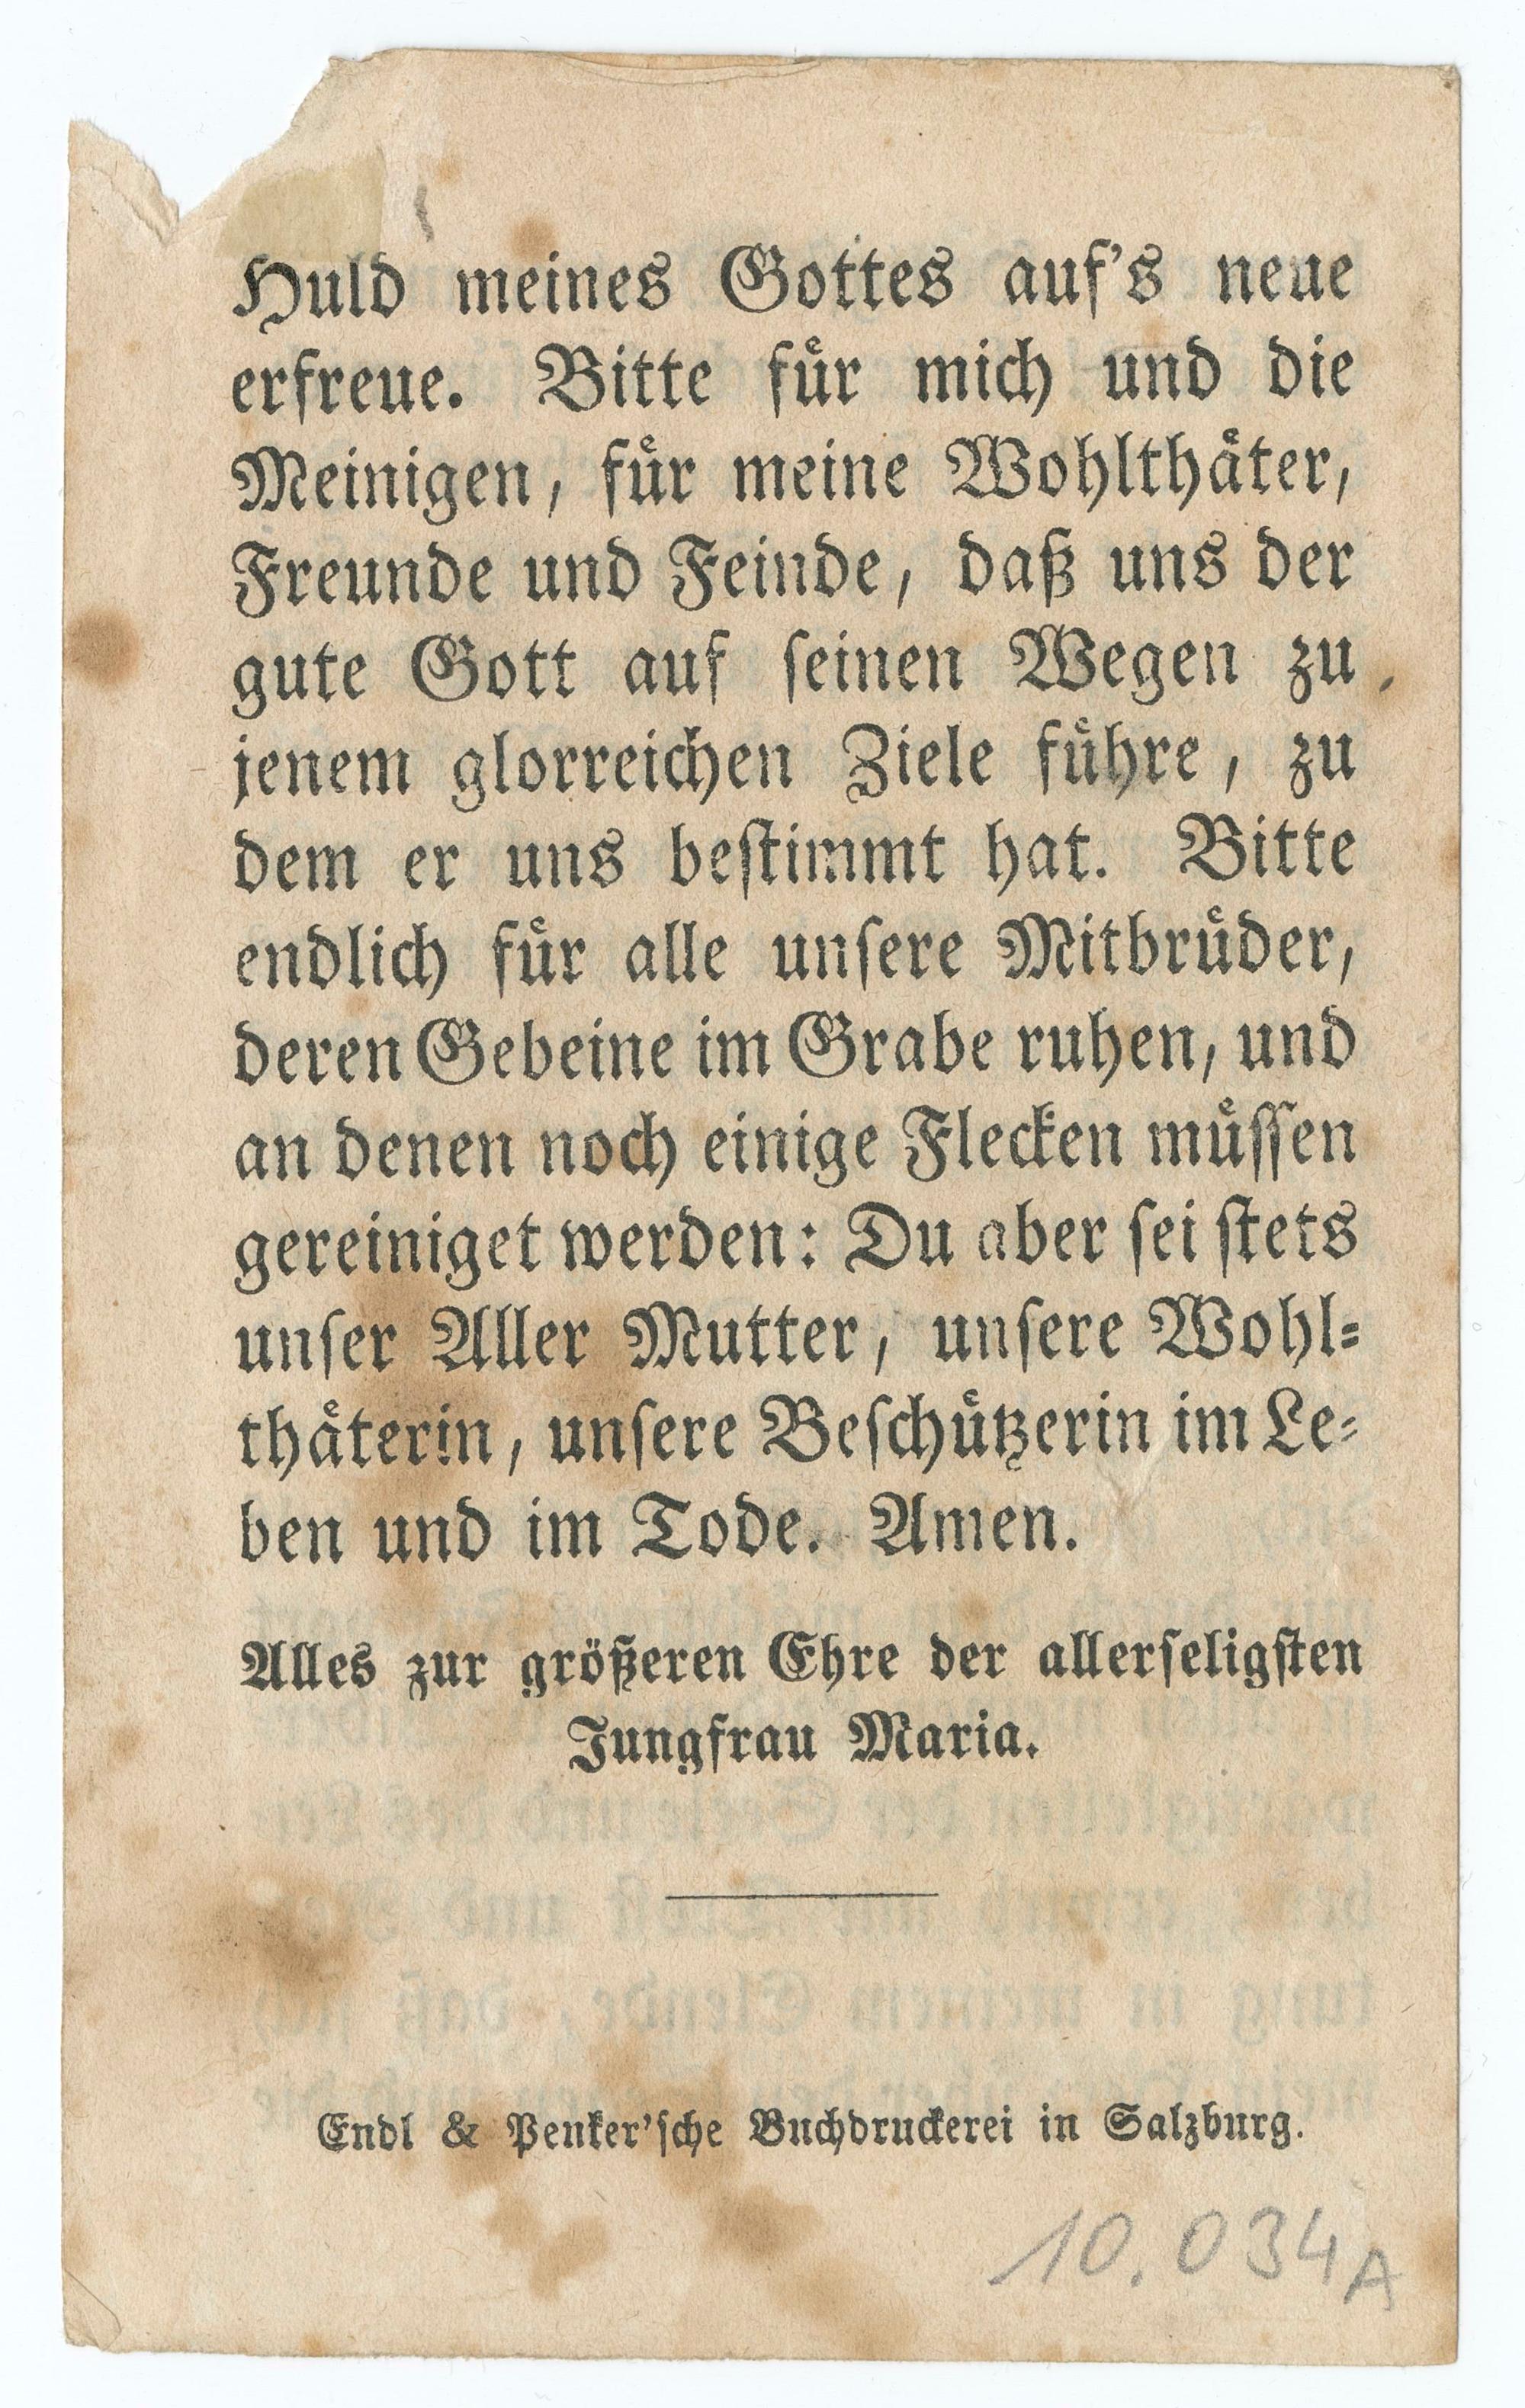 Huld meines Gottes auf's neue
erfreue. Bitte fuͤr mich und die
Meinigen, fuͤr meine Wohlthaͤter,
Freunde und Feinde, daß uns der
gute Gott auf ſeinen Wegen zu
jenem glorreichen Ziele fuͤhre, zu
dem er uns beſtimmt hat. Bitte
endlich fuͤr alle unſere Mitbruͤder,
deren Gebeine im Grabe ruhen, und
an denen noch einige Flecken muͤſſen
gereiniget werden: Du aber ſei ſtets
unſer Aller Mutter, unſere Wohl⸗
thaͤterin, unſere Beſchuͤtzerin im Le⸗
ben und im Tode. Amen.
Alles zur größeren Ehre der allerſeligſten
Jungfrau Maria.
Endl & Penker'ſche Buchdruckerei in Salzburg.
10.034A